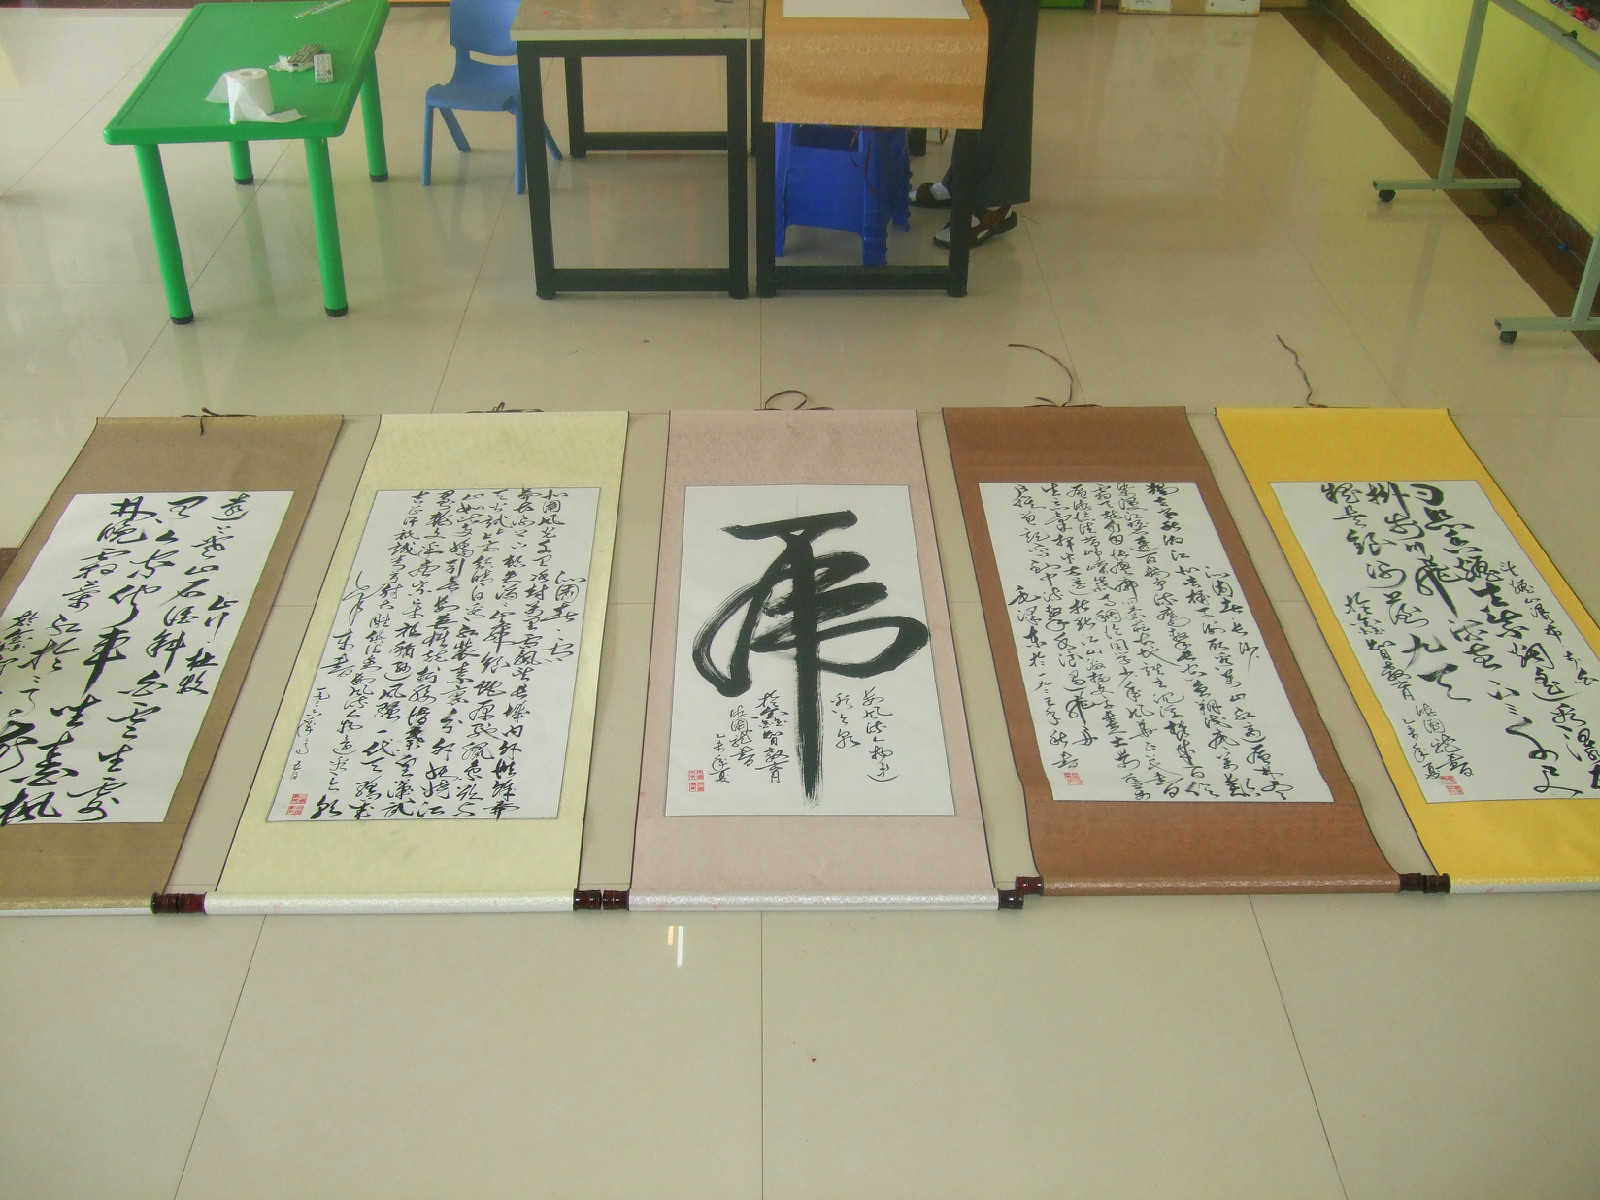 山行 杜牧
远上寒山石径斜白云生处
有人家停车坐爱枫
林晚霜叶红于二月花
沁园春·雪
北国风光千里冰封万里雪飘望长城内外惟余莽
莽大河上下顿失滔滔山舞银蛇原驰蜡象欲与
天公试比高须晴日看红装素裹分外妖娆江
山如此多娇引无数英雄竞折腰惜秦皇汉武
略输文采唐宗宋祖稍逊风骚一代天骄成
吉思汗只识弯弓射大雕俱往矣数风流人物还看今朝
虎
数风流人物还
看今朝
智教育
乙未年夏
沁园春·长沙
独立寒秋湘江北去橘子洲头看万山红遍层林尽
染漫江碧透百舸争流鹰击长空鱼翔浅底万类
霜天竞自由怅寥廓问苍茫大地谁主沉浮携来百侣
曾游忆往昔峥嵘岁月稠恰同学少年风华正茂书
生意气挥斥方遒指点江山激扬文字粪土当年万
户侯曾记否到中流击水浪遏飞舟
望庐山瀑布 李白
日照香炉生紫烟遥看瀑布
挂前川飞流直下三千尺
疑是银河落九天
智教育
乙未年夏